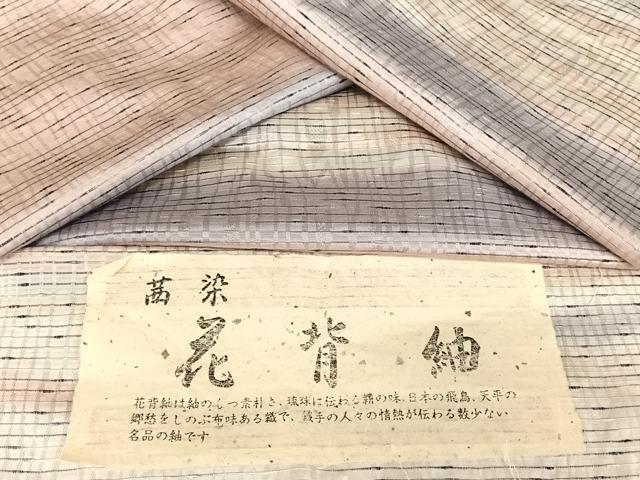 茜染
花背紬
花背紬は紬のもつ素朴さ、琉球に伝わる絣の味、日本の飛鳥、天平の
郷愁をしのぶ布味ある織で、織手の人々の情熱が伝わる数少ない
名品の紬です